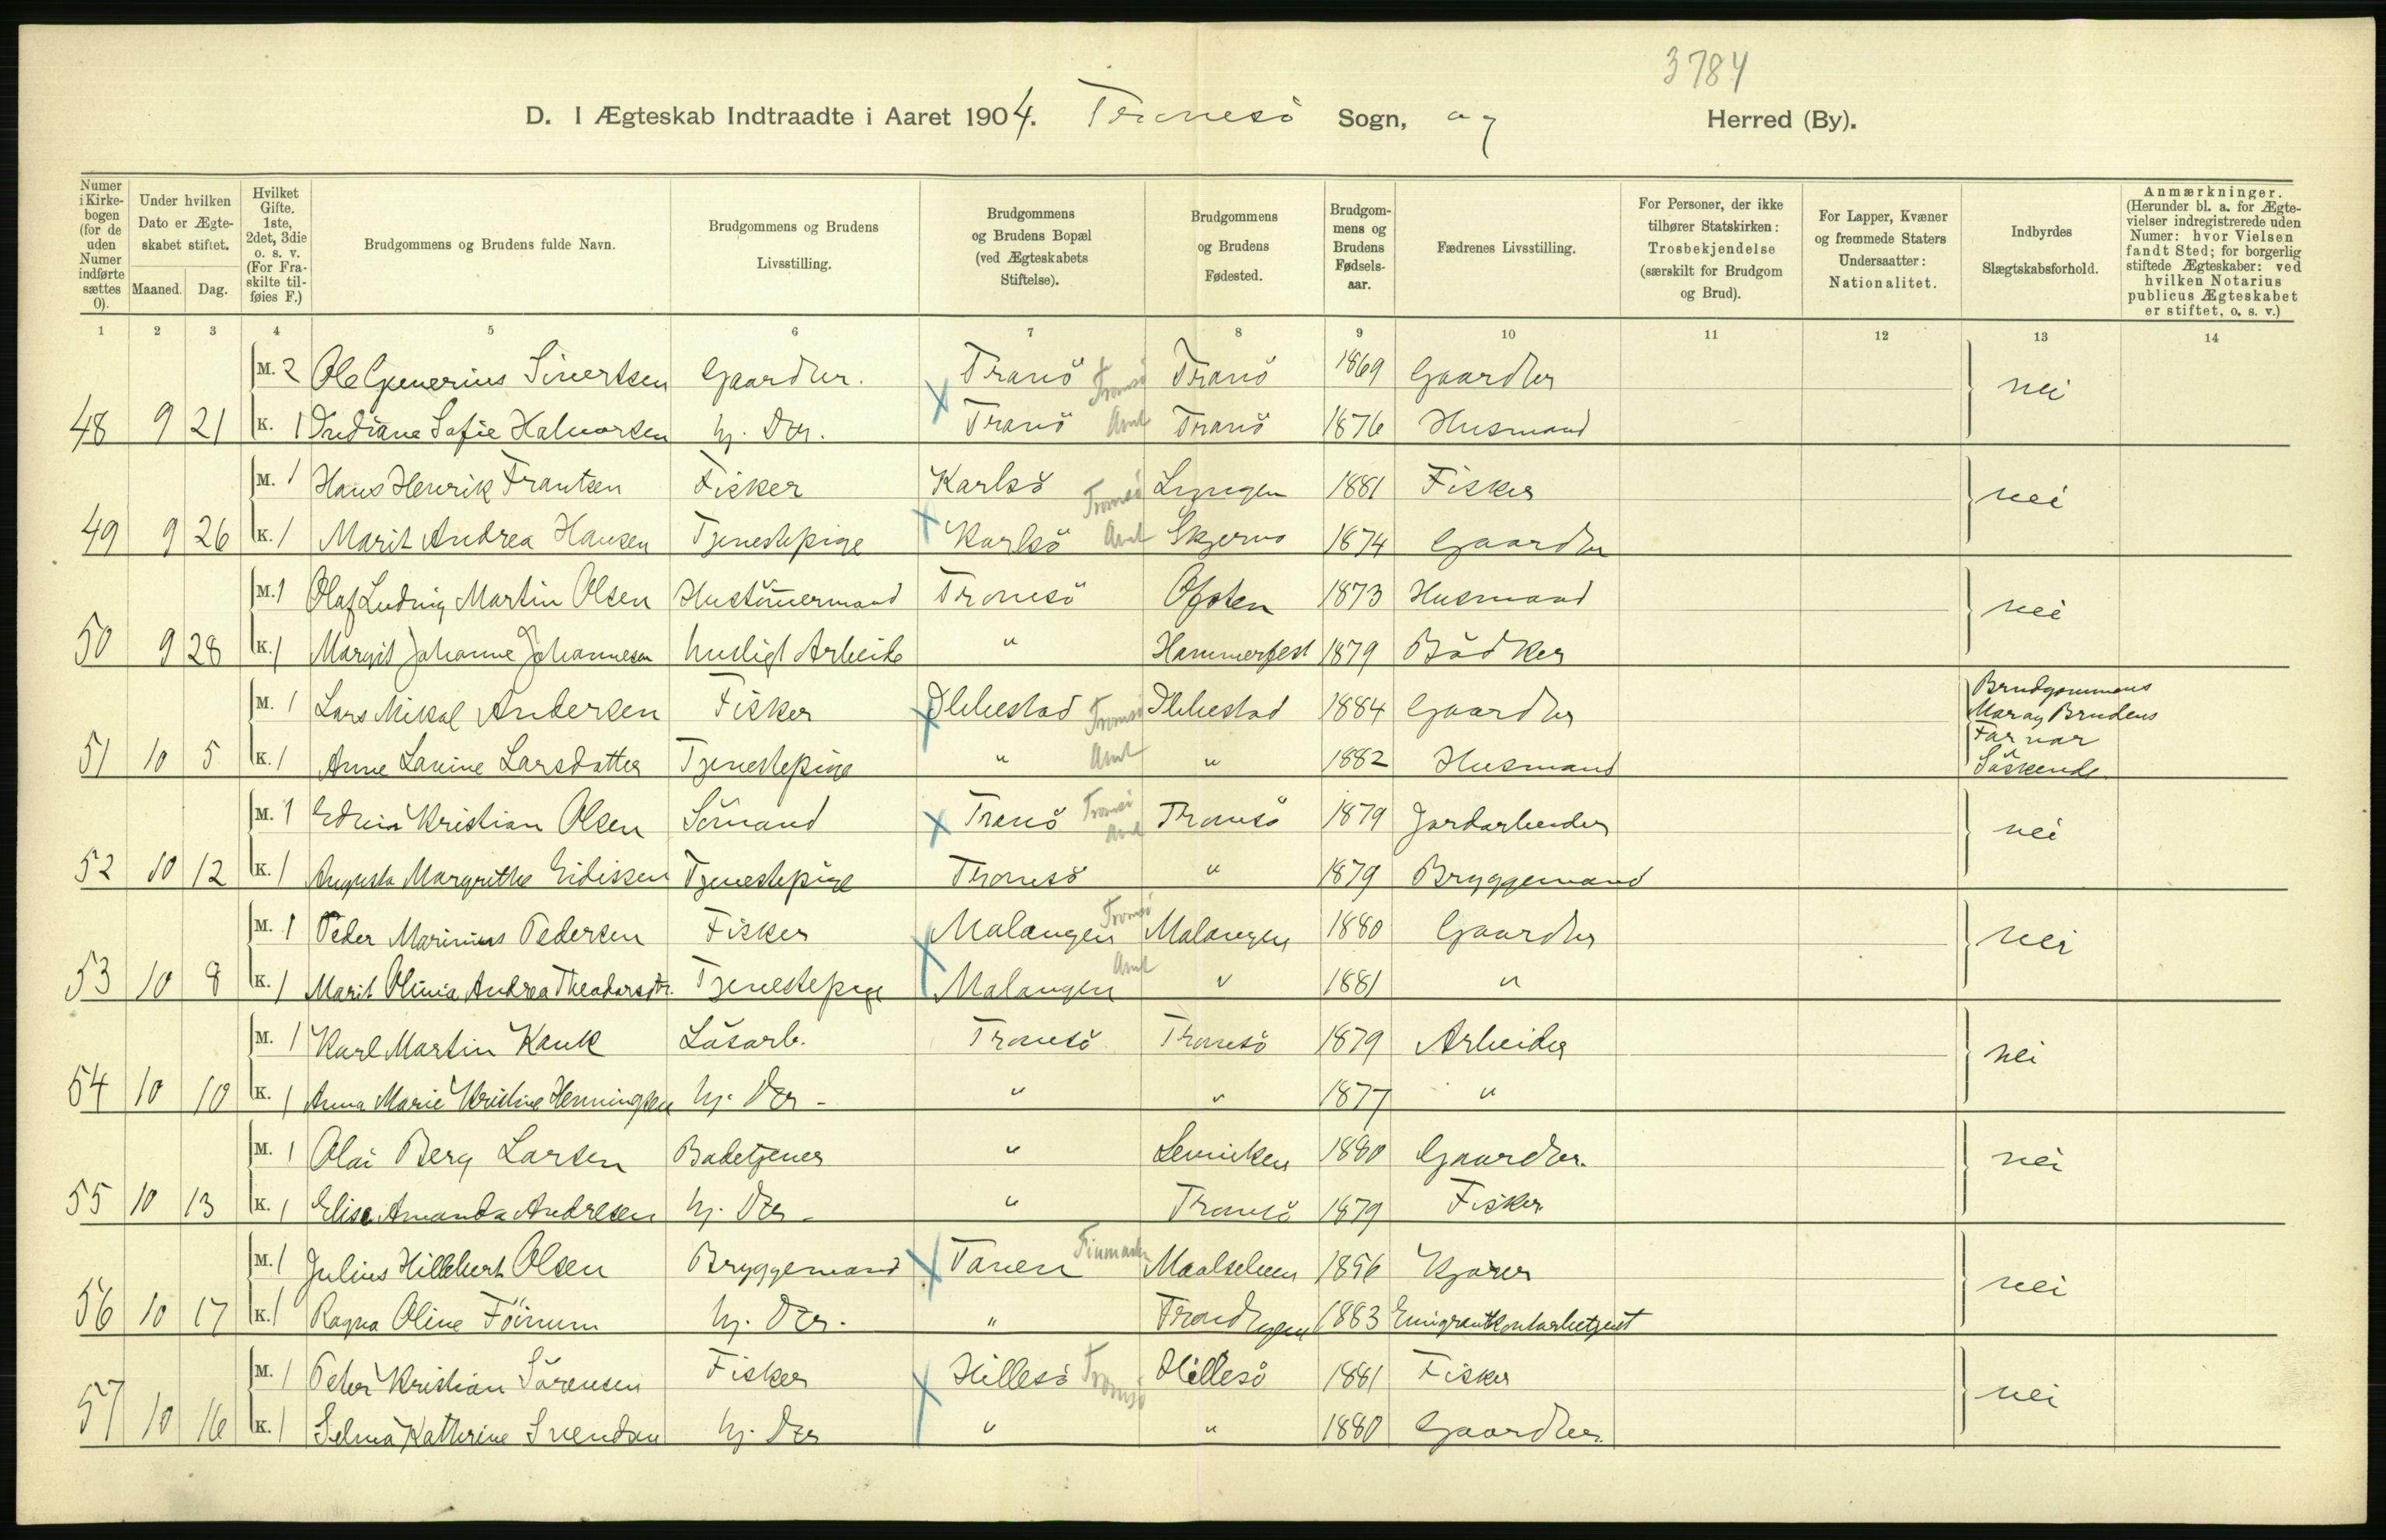 3784
D. I Ægteskab Indtraadte i Aaret 1904. Tromsö Sogn, og Herred (By).
Numer i Kirkebogen (for de uden Numer indførte sættes 0).
Under hvilken Dato er Ægteskabet stiftet.
Maaned. Dag.
Hvilket Gifte. 1ste, 2det, 3die o. s. v. (For Fraskilte tilføies F.)
Brudgommens og Brudens fulde Navn.
Brudgommens og Brudens Livsstilling.
Brudgommens og Brudens Bopæl (ved Ægteskabets Stiftelse).
Brudgommens og Brudens Fødested.
Brudgommens og Brudens Fødselsaar.
Fædrenes Livsstilling.
For Personer, der ikke tilhører Statskirken: Trosbekjendelse (særskilt for Brudgom og Brud).
For Lapper, Kvæner og fremmede Staters Undersaatter: Nationalitet.
Indbyrdes Slægtskabsforhold.
Anmærkninger. (Herunder bl. a. for Ægtevielser indregistrerede uden Numer: hvor Vielsen fandt Sted; for borgerlig stiftede Ægteskaber: ved hvilken Notarius publicus Ægteskabet er stiftet, o. s. v.)
1 2 3 4 5 6 7 8 9 10 11 12 13 14
M. 2 Ole Sivertsen Gaardbr. Tranö Tromsö Tranö 1869 Gaardbr nei
48 9 21 K. 1 Indiane Sofie Halvorsen hj. Dtr. Tranö Amt Tranö 1876 Husmand
M. 1 Hans Henrik Frantsen Fisker Karlsö Tromsö Lyngen 1881 Fisker nei
49 9 26 K. 1 Marit Andrea Hansen Tjenestepige Karlsö Amt Skjervö 1874 Gaardbr
M. 1 Olaf Ludvig Martin Olsen Hustömermand Tromsö Ofoten 1873 Husmand nei
50 9 28 K. 1 Margit Johanne Johannesen husligt Arbeide " Hammerfest 1879 Bödker
M. 1 Lars Mikal Andersen Fisker Ibbestad Tromsö Ibbestad 1884 Gaardbr Brudgommens Mor og Brudens Far var Söskende
51 10 5 K. 1 Anne Lavine Larsdatter Tjenestepige " Amt " 1882 Husmand
M. 1 Edvin Kristian Olsen Sömand Tranö Tromsö Amt Tromsö 1879 Jordarbeider nei
52 10 12 K. 1 Augusta Margrethe Eidissen Tjenestepige Tromsö " 1879 Bryggemand
M. 1 Peder Marinius Pedersen Fisker Malangen Tromsö Malangen 1880 Gaardbr nei
53 10 8 K. 1 Marit Olivia Andrea Theodorsdtr. Tjenestepige Malangen Amt " 1881 "
M. 1 Karl Martin Kauk Lösarb. Tromsö Tromsö 1879 Arbeider nei
54 10 10 K. 1 Anna Marie Kristine Henningsen hj. Dtr - " " 1877 "
M. 1 Olai Berg Larsen Badetjener " Lenviken 1880 Gaardbr. nei
55 10 13 K. 1 Elise Amanda Andresen hj. Dtr - " Tromsö 1879 Fisker
M. 1 Julius Hillebert Olsen Bryggemand Tanen Finmark Maalselven 1856 Kjörer nei
56 10 17 K. 1 Ragna Oline Föinum hj. Dtr. " Trondhjem 1883
M. 1 Peter Kristian Sörensen Fisker Hillesö Tromsö Hillesö 1881 Fisker nei
57 10 16 K. 1 Selma Kathrine Svendsen hj. Dtr " " 1880 Gaardbr.